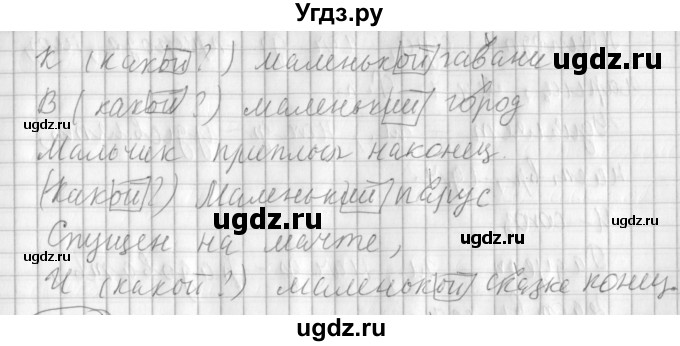 Угдз.ру
К (какой?) маленькой гавани
В (какой?) маленький город
Мальчик приплыл наконец.
(Какой?) Маленький парус
Спущен на мачте,
И (какой?) маленькой сказке конец.
udgz.ru
ugdz.ru
ugdz.ru
ugdz.ru
ugdz.ru
ugdz.ru
ugdz.ru
ugdz.ru
ugdz.ru
ugdz.ru